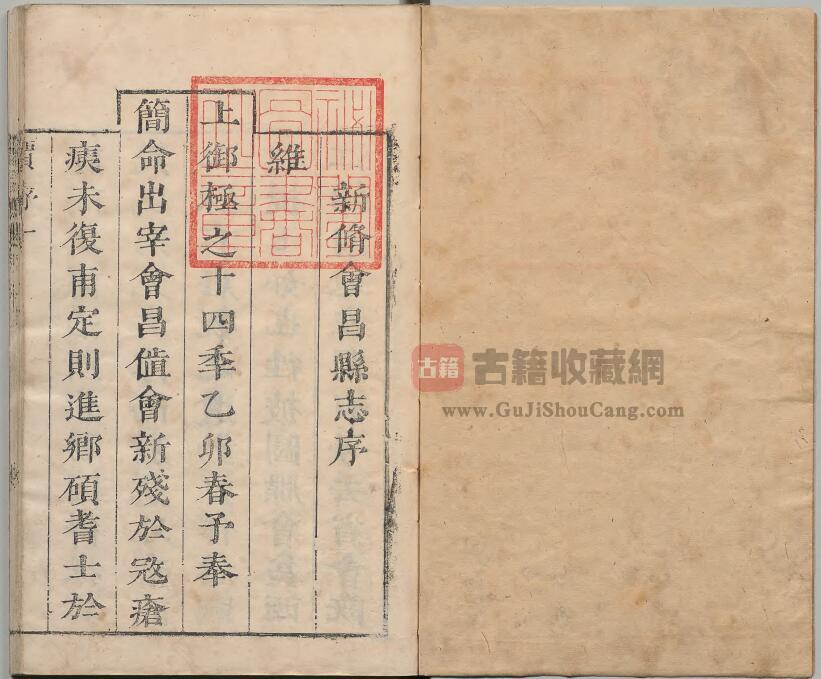 新脩會昌縣志序
維
上御極之十四季乙卯春予奉
簡命出宰會昌值會新殘於寇瘡
痍未復甫定則進鄉碩耆士於
序一
古籍
古籍收藏網
www.GuJiShouCang.com